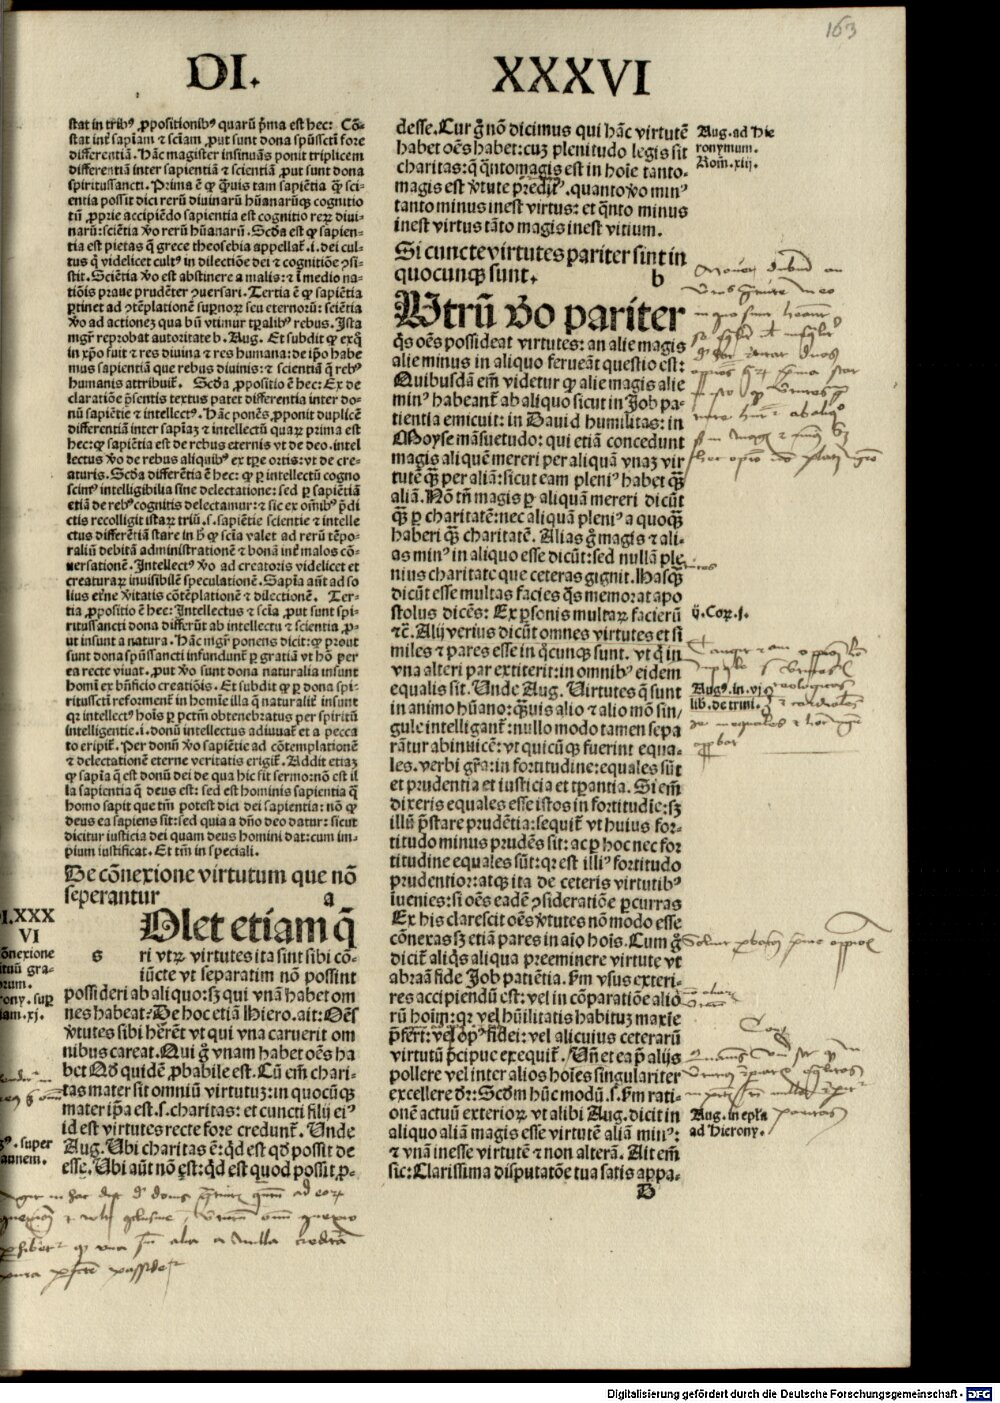 163
DI.
XXXVI
stat in tribꝰ ꝓpositionibꝰ quarū pͥma est hec: Cō-
stat inͭ sapiam ⁊ sciam ꝓut sunt dona spūssctī fore
differentiā. Hāc magister insinuās ponit triplicem
differentiā inter sapientiā ⁊ scientiā ꝓut sunt dona
spiritussancti. Prima ē ꝙ q̄uis tam sapiētia q̄ sci-
entia possit dici rerū diuinarū hūanarūq̨ cognitio
tū ꝓprie accipiēdo sapientia est cognitio reꝝ diui-
narū: sciētia v̊o rerū hūanarū. Scḋa est ꝙ sapien-
tia est pietas q̄ grece theosebia appellaꝉ. i. dei cul-
tus q̄ videlicet cultꝰ in dilectiōe dei ⁊ cognitiōe ꝯsi-
stit. Sciētia v̊o est abstinere a malis: ⁊ ī medio na-
tiōis praue prudēter ꝯuersari. Tertia ē ꝙ sapiētia
ꝑtinet ad ꝯtēplationē supnoꝝ seu eternorū: sciētia
v̊o ad actioneȝ qua bn̄ vtimur tpalibꝰ rebus. Ista
mgr̄ reprobat autoritate b. Aug. Et subdit ꝙ exq̄
in xp̄o fuit ⁊ res diuina ⁊ res humana: de ip̄o habe
mus sapientiā que rebus diuinis: ⁊ scientiā q̄ rebꝰ
humanis attribuiꝉ. Scḋa ꝓpositio ē hec: Ex de
claratiōe p̄sentis textus patet differentia inter do-
nū sapiētie ⁊ intellectꝰ. Hāc ponēs ꝓponit duplicē
differentiā inter sapiaȝ ⁊ intellectū quaꝝ prima est
hec: ꝙ sapiētia est de rebus eternis vt de deo. intel
lectus v̊o de rebus aliquibꝰ ex tpe ortis: vt de cre-
aturis. Scḋa differētia ē hec: ꝙ ꝑ intellectū cogno
scimꝰ intelligibilia sine delectatione: sed ꝑ sapiētiā
etiā de rebꝰ cognitis delectamur: ⁊ sic ex om̄ibꝰ p̄di
ctis recolligit istaꝝ triū. s. sapiētie scientie ⁊ intelle
ctus differētiā stare in ḣ ꝙ scia valet ad rerū tēpo-
raliū debitā administrationē ⁊ bonā inͭ malos cō-
uersationē. Intellectꝰ v̊o ad creatoris videlicet et
creaturaꝝ inuisibilē speculationē. Sapia aūt ad so
lius etn̄e v̊itatis cōtēplationē ⁊ dilectionē. Ter-
tia ꝓpositio ē hec: Intellectus ⁊ scia ꝓut sunt spi-
ritussancti dona differūt ab intellectu ⁊ scientia ꝓ-
ut insunt a natura. Hāc mgr̄ ponens dicit: ꝙ prout
sunt dona spūssancti infundunꝉ ꝑ gratiā vt hō per
ea recte viuat. ꝓut v̊o sunt dona naturalia insunt
homī ex bn̄ficio creatiōis. Et subdit ꝙ ꝑ dona spi-
ritussctī reformenꝉ in homīe illa q̄ naturaliꝉ insunt
qꝛ intellectꝰ hoīs ꝑ pctm̄ obtenebratus per spiritū
intelligentie. i. donū intellectus adiuuaꝉ et a pecca
to eripiꝉ. Per donū v̊o sapiētie ad cōtemplationē
⁊ delectationē eterne veritatis erigiꝉ. Addit etiaȝ
ꝙ sapia q̄ est donū dei de qua hic sit sermo: nō est il
la sapientia q̄ deus est: sed est hominis sapientia q̄
homo sapit que tm̄ potest dici dei sapientia: nō ꝙ
deus ea sapiens sit: sed quia a dn̄o deo datur: sicut
dicitur iusticia dei quam deus homini dat: cum im-
pium iustificat. Et tm̄ in speciali.
De cōnexione virtutum que nō
seperantur a
Olet etiam q̄
s ri vtꝝ virtutes ita sint sibi cō-
iūcte vt separatim nō possint
possideri ab aliquo: sȝ qui vnā habet om
nes habeat? De hoc etiā Hiero. ait: Oēs
v̊tutes sibi hērēt vt qui vna caruerit om
nibus careat. Qui g̊ vnam habet oēs ha
bet Qḋ quidē ꝓbabile est. Cū em̄ chari-
tas mater sit omniū virtutuȝ: in quocūq̨
mater ip̄a est. s. charitas: et cuncti filij eiꝰ
id est virtutes recte fore credunꝉ. Unde
Aug. Ubi charitas ē: qḋ est qḋ possit de
esse. Ubi aūt nō est: qḋ est quod possit ꝓ-
desse. Cur g̊ nō dicimus qui hāc virtutē
habet oēs habet: cuȝ plenitudo legis sit
charitas: q̄ q̄ntomagis est in hoīe tanto-
magis est v̊tute predit̕. quanto v̊o minꝰ
tanto minus inest virtus: et q̄nto minus
inest virtus tāto magis inest vitium.
Si cuncte virtutes pariter sint in
quocunq̨ sunt. b
Utrū v̊o pariter
q̊s oēs possideat virtutes: an alie magis
alie minus in aliquo ferueāt questio est:
Quibusdā em̄ videtur ꝙ alie magis alie
minꝰ habeanꝉ ab aliquo sicut in Job pa-
tientia emicuit: in Dauid humilitas: in
Moyse māsuetudo: qui etiā concedunt
magis aliquē mereri per aliquā vnaȝ vir
tutē q̄ꝫ per aliā: sicut eam pleniꝰ habet q̄ꝫ
aliā. Nō tn̄ magis ꝑ aliquam mereri dicūt
q̄ꝫ ꝑ charitatē: nec aliquam pleniꝰ a quoq̄ꝫ
haberi q̄ꝫ charitatē. Alias g̊ magis ⁊ ali-
as minꝰ in aliquo esse dicūt: sed nullā ple
nius charitate que ceteras gignit. Hasq̨
dicūt esse multas facies q̊s memorat apo
stolus dicēs: Ex ꝑsonis multaꝝ facierū
⁊c̄. Alij verius dicūt omnes virtutes et si
miles ⁊ pares esse in q̊cunq̨ sunt. vt q̊ in
vna alteri par extiterit: in omnibꝰ eidem
equalis sit. Unde Aug. Virtutes q̄ sunt
in animo hūano: q̄uis alio ⁊ alio mō sin-
gule intelliganꝉ: nullo modo tamen sepa
rātur abinuicē: vt quicūq̨ fuerint equa-
les. verbi gr̄a: in fortitudine: equales sūt
et prudentia et iusticia et tꝑantia. Si em̄
dixeris equales esse istos in fortitudīe: sȝ
illū p̄stare prudētia: sequiꝉ vt huius for-
titudo minus prudēs sit: ac ꝑ hoc nec for
titudine equales sūt: qꝛ est illiꝰ fortitudo
prudentior: atq̨ ita de ceteris virtutibꝰ
īuenies: si oēs eadē ꝯsideratiōe ꝑcurras
Ex his clarescit oēs v̊tutes nō modo esse
cōnexas sȝ etiā pares in aīo hoīs. Cum g̊
diciꝉ aliq̊s aliqua preeminere virtute vt
abraā fide Job patiētia. Fm̄ vsus exteri-
res accipiendū est: vel in cōparatiōe alio
rū hoīm: qꝛ vel hūilitatis habituȝ maxīe
p̄fert: vel opꝰ fidei: vel alicuius ceterarū
virtutū p̄cipue exequiꝉ. Uñ et ea p̄ alijs
pollere vel inter alios hoīes singulariter
excellere d̄r: Scḋm hūc modū. s. fm̄ rati-
onē actuū exterioꝝ vt alibi Aug. dicit in
aliquo aliā magis esse virtutē aliā minꝰ:
⁊ vnā inesse virtutē ⁊ non alterā. Ait em̄
sic: Clarissima disputatōe tua satis appa-
D
Aug. ad Hie
ronymum.
Rom̄. xiij.
ij. Coꝝ. j.
Augꝰ. in. vj.
lib. de trini.
Aug. in ep̄la
ad Hierony.
I. XXX
VI
ōnexione
ituū gra-
rum.
rony. sup
iam. xj.
gꝰ. super
annem.
Digitalisierung gefördert durch die Deutsche Forschungsgemeinschaft - DFG